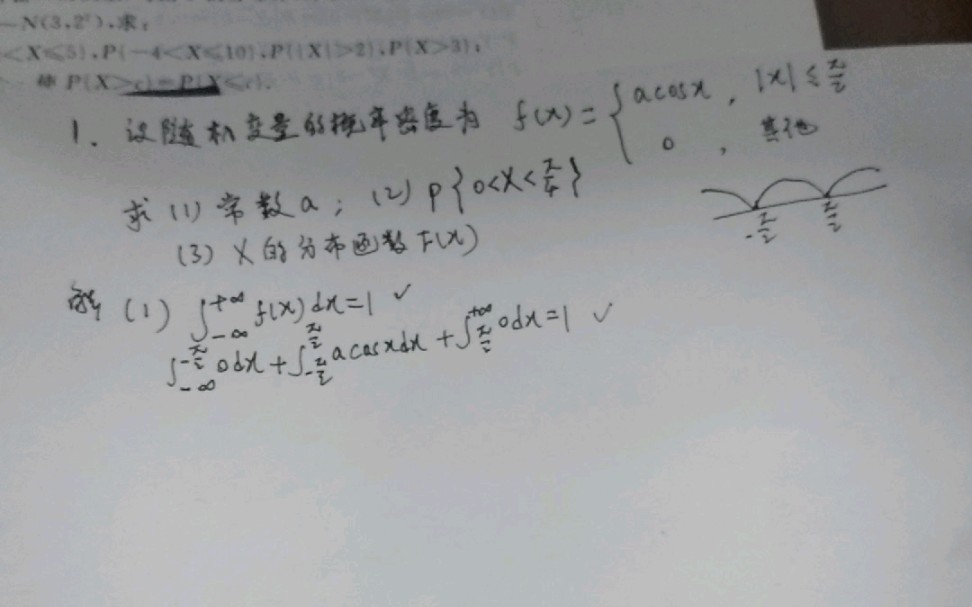 ~N(3,2²),求:
<X≤5},P{-4<X≤10},P{|X|>2},P{X>3};
使 P{X>c}=P{X≤c}.
1. 设随机变量的概率密度为 f(x)={acosx, |x|≤π/2
0, 其他
求(1)常数a; (2) P{0<X<π/4}
(3) X的分布函数F(x)
-π/2 π/2
解 (1) ∫_{-∞}^{+∞} f(x)dx=1 ✓
∫_{-∞}^{-π/2} 0dx+∫_{-π/2}^{π/2} acosxdx+∫_{π/2}^{+∞} 0dx=1 ✓